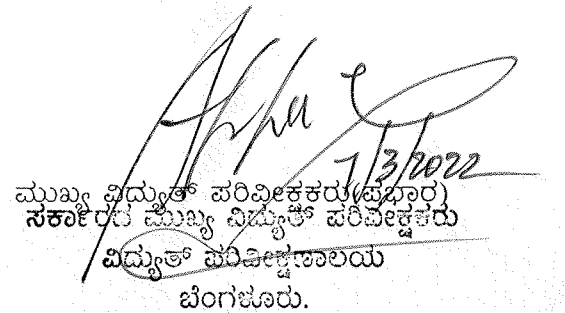 1/3/2022
ಮುಖ್ಯ ವಿದ್ಯುತ್ ಪರಿವೀಕ್ಷಕರು(ಪ್ರಭಾರ)
ಸರ್ಕಾರದ ಮುಖ್ಯ ವಿದ್ಯುತ್ ಪರಿವೀಕ್ಷಕರು
ವಿದ್ಯುತ್ ಪರಿವೀಕ್ಷಣಾಲಯ
ಬೆಂಗಳೂರು.